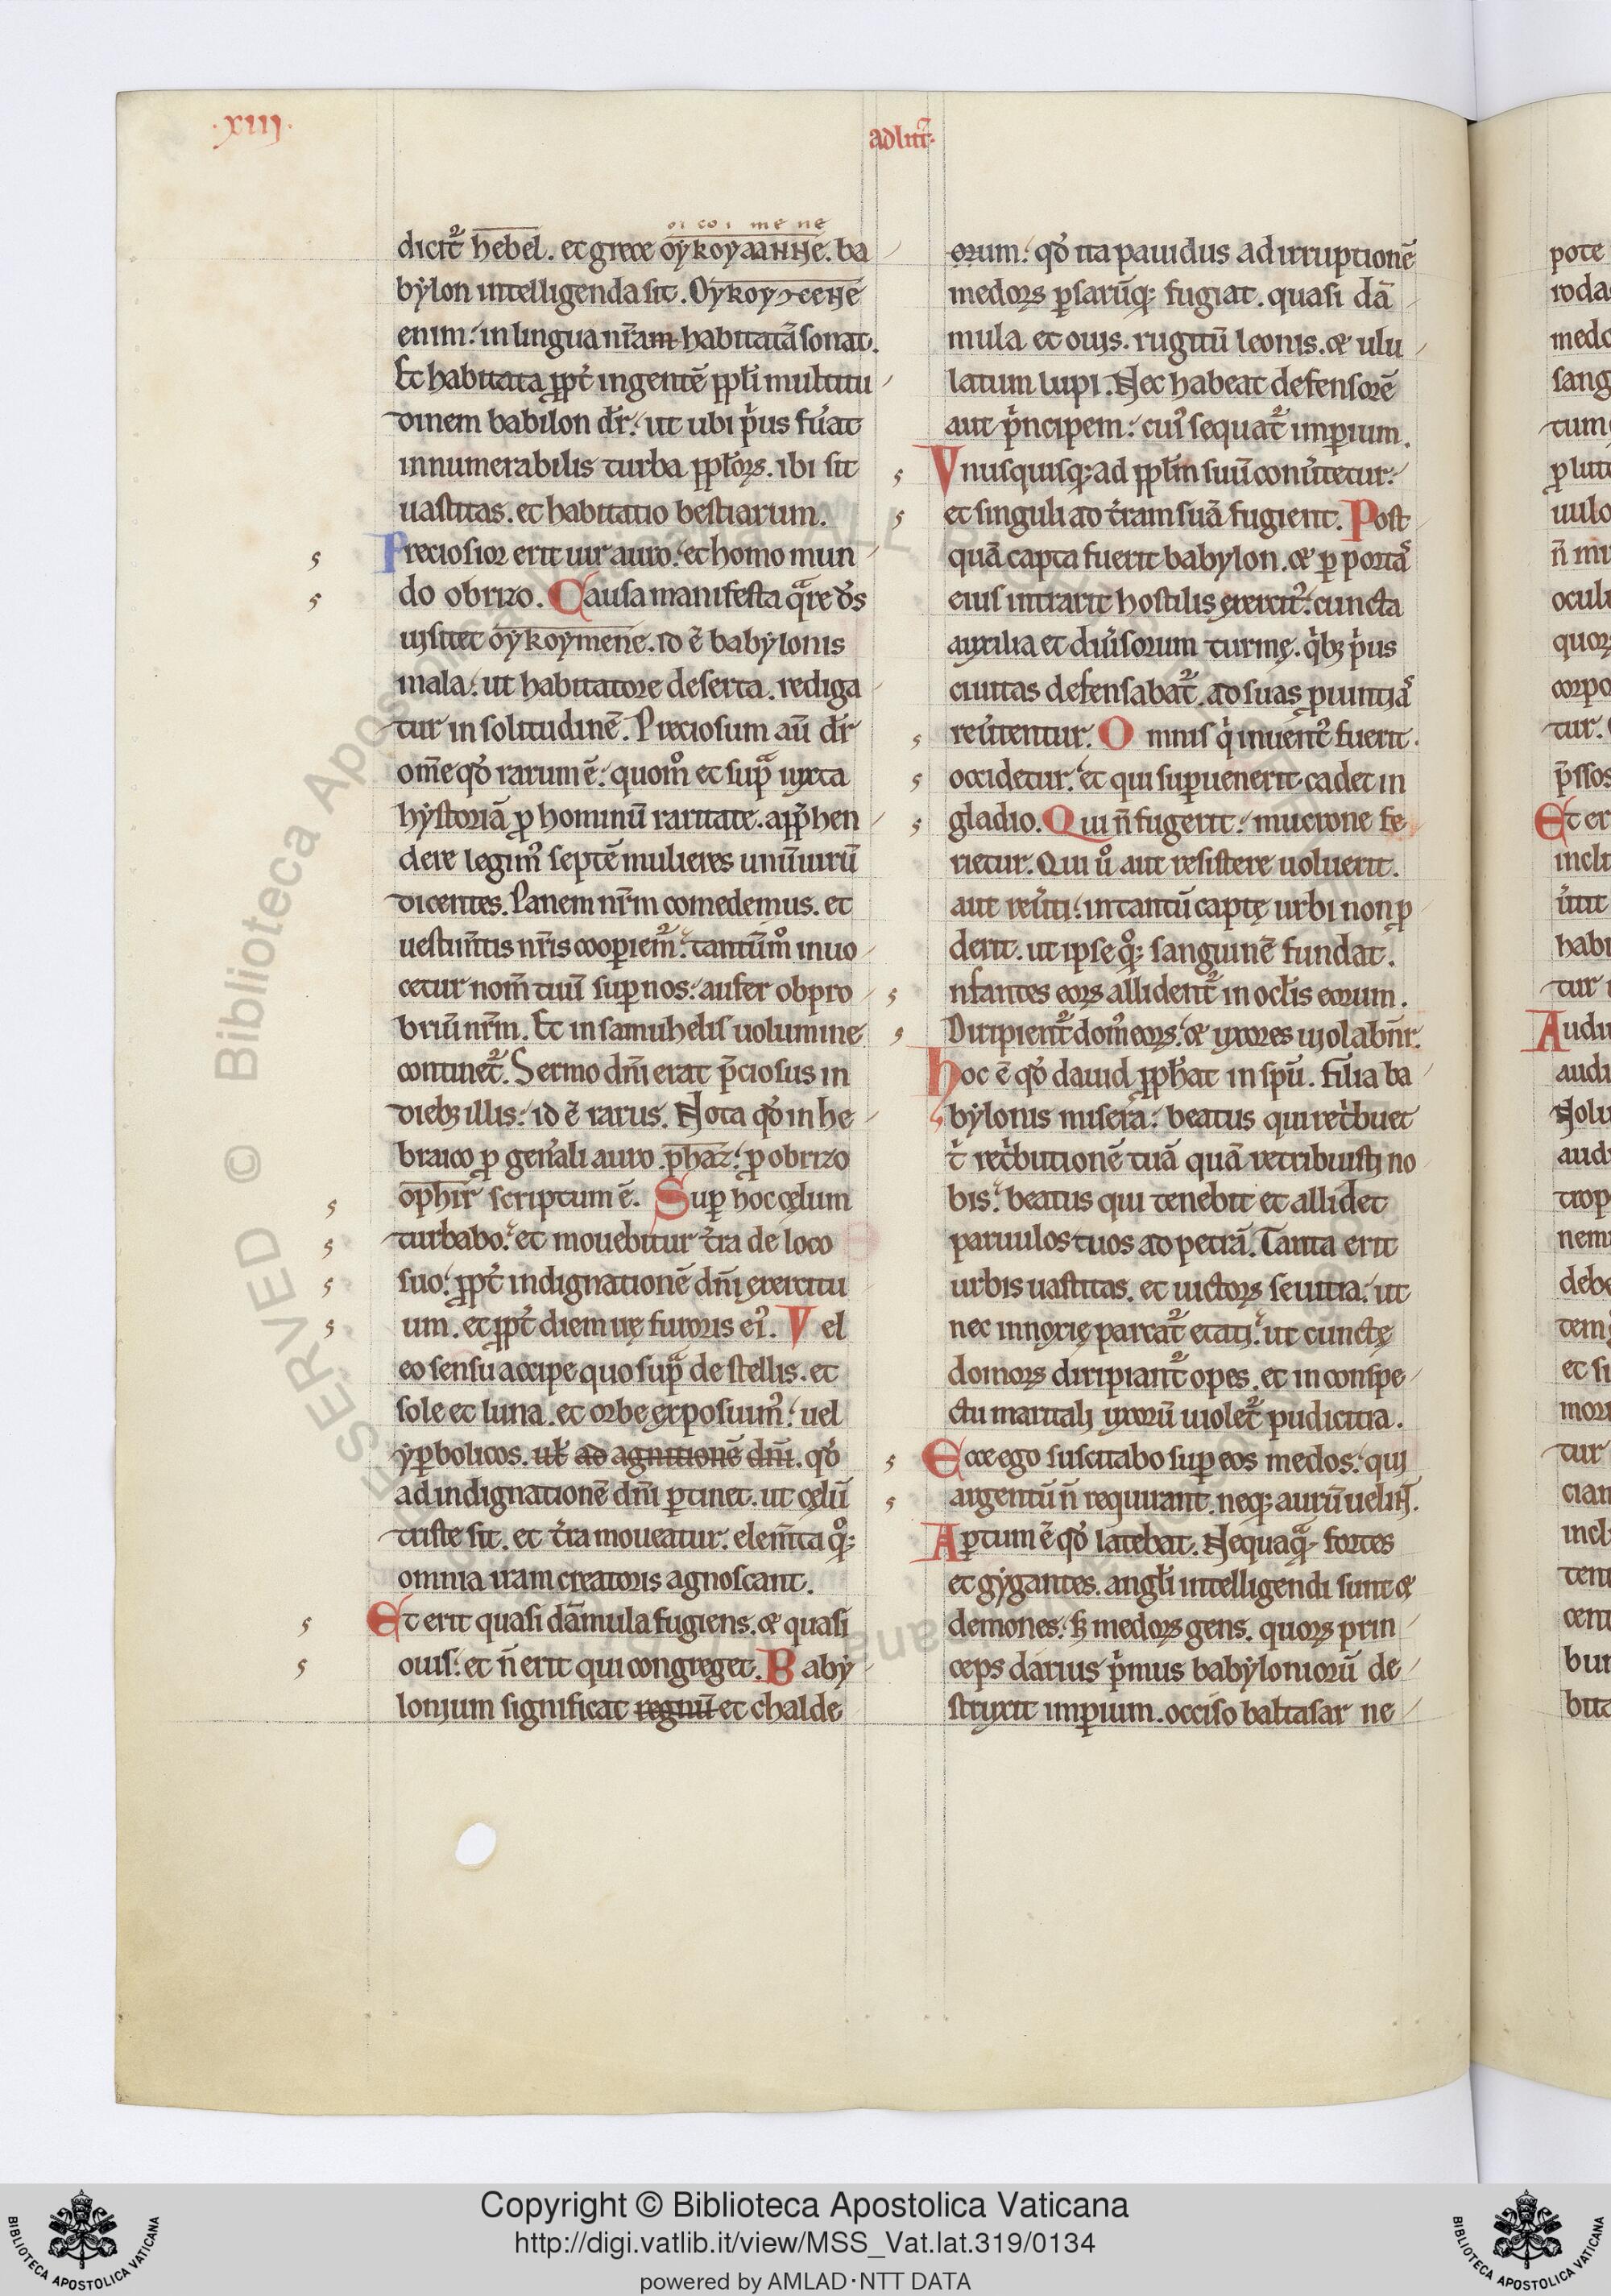 ·xiij·
ad litt̃·
oi co i me ne
dicit᷑ hebel. et grece oykoyaanne. ba
bẏlon intelligenda sit. Oykoy
enim. in lingua nr̃am habitatā sonat.
Et habitata ꝓpt̾ ingentē ppl̃i multitu
dinem babilon dr̃. ut ubi pⁱus fu̾at
innumerabilis turba ppl̃oꝝ. ibi sit
uastitas. et habitatio bestiarum.
Preciosior erit uir auro. et homo mun
do obrizo. Causa manifesta q̃re d̃s
uisitet oykoymene. id ē babylonis
mala. ut habitatore deserta. rediga
tur in solitudinē. Preciosum aū dr̃
om̄e qđ rarum ē. quom̊ et sup̃ iuxta
hẏstoriā ꝓ hominū raritate. app̃hen
dere legim᷒ septē mulieres unū uirū
dicentes. Panem nr̃m comedemus. et
uestim̃tis nr̃is cooꝑiem᷒. tantūm̊ inuo
cetur nom̃ tuū suꝑ nos. aufer obpro
briū nr̃m. Et in samuhelis uolumine
continet᷑. Sermo dñi erat p̃ciosus in
diebꝫ illis. id ē rarus. Nota qđ in he
braico ꝓ gen̾ali auro. phaz. ꝓ obrizo
ophir scriptum ē. Suꝑ hoc cęlum
turbabo. et mouebitur t̾ra de loco
suo. ꝓpt̾ indignationē dñi exercitu
um. et ꝓpt̾ diem irę furoris ei᷒. Vel
eo sensu accipe quo sup̃ de stellis. et
sole et luna. et orbe exposuim᷒. uel
ẏꝑbolicos. ut ad agnitionē dñi. qđ
ad indignationē dñi ꝑtinet. ut cęlū
triste sit. et t̾ra moueatur. elem̃ta q̊ꝫ
omnia iram creatoris agnoscant.
Et erit quasi dāmula fugiens. & quasi
ouis. et ñ erit qui congreget. Babẏ
lonium significat regnū et chalde
orum. qđ ita pauidus ad irruptionē
medoꝝ ꝑsarūqꝫ fugiat. quasi dā
mula et ouis. rugitū leonis. & ulu
latum lupi. Nec habeat defensorē
aut pⁱncipem. cui᷒ sequat᷑ imꝑium.
Vnusquisqꝫ ad ppl̃m suū conu̾tetur.
et singuli ad t̾ram suā fugient. Post
quā capta fuerit babylon. & ꝑ portaˢ
eius intrarit hostilis exercit᷒. cuncta
auxilia et diu̾sorum turmę. qⁱbꝫ pⁱus
ciuitas defensabat᷑. ad suas ꝓuintiaˢ
reu̾tentur. Omnis qⁱ inuent᷒ fuerit.
occidetur. et qui suꝑuenerit cadet in
gladio. Qui ñ fugerit. mucrone fe
rietur. Qui ů aut resistere uoluerit.
aut reu̾ti. in tantū captę urbi non ꝓ
derit. ut ipse q̊ꝫ sanguinē fundat.
nfantes eoꝝ allident᷑ in ocl̃is eorum.
Diripient᷑ dom᷒ eoꝝ. & uxores uiolabñr.
Hoc ē qđ dauid ꝓph̃at in spū. Filia ba
bẏlonis misera. beatus qui retⁱbuet
tⁱ retⁱbutionē tuā quā retribuisti no
bis. beatus qui tenebit et allidet
paruulos tuos ad petrā. Tanta erit
urbis uastitas. et uictoꝝ seuitia. ut
nec innoxię parcat᷑ etati. ut cunctę
domoꝝ diripiant᷑ opes. et in conspe
ctu maritali uxorū uiolet᷑ pudicitia.
Ecce ego suscitabo suꝑ eos medos. qui
argentū ñ requirant. neqꝫ aurū uelint.
Aꝑtum ē qđ latebat. Nequaq̃ fortes
et gẏgantes. angl̃i intelligendi sunt &
demones. sꝫ medoꝝ gens. quoꝝ prin
ceps darius pⁱmus babẏloniorū de
struxit imꝑium. occiso baltasar ne
pote
roda
medo
sang
tum
ꝑ lut
uulo
ñ mi
oculi
quoꝝ
corpo
tur.
p̃ssos
Et er
incli
u̾tit
habi
tur
Audi
audi
Nolu
audi
trop
nem
debe
tem
et si
mori
tur
cian
incl
teni
cent
bur
bita
© Biblioteca Apostolica Vaticana
Copyright © Biblioteca Apostolica Vaticana
http://digi.vatlib.it/view/MSS_Vat.lat.319/0134
powered by AMLAD·NTT DATA
BIBLIOTECA APOSTOLICA VATICANA
BIBLIOTECA APOSTOLICA VATICANA